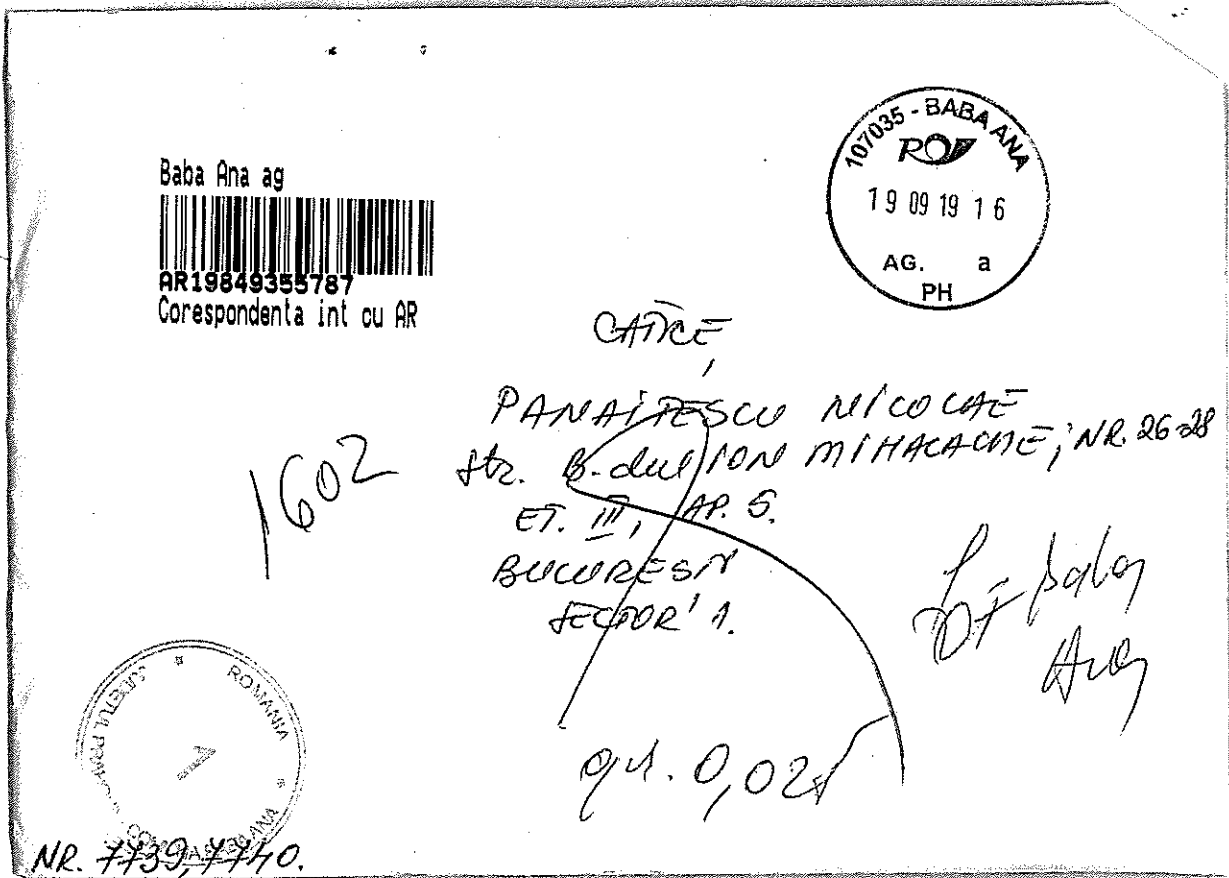 Baba Ana ag
AR19849355787
Corespondenta int cu AR
107035 - BABA ANA
19 09 19 16
AG. a
PH
CĂTRE
PANAITESCU NICOLAE
str. B-dul ION MIHALACHE, NR. 26-28
ET. III, AP. 5.
BUCUREȘTI
SECTOR 1.
1602
Baba
Ana
0,02
ROMANIA
JUDETUL PRAHOVA
COMUNA BABA ANA
NR. 7739, 7740.